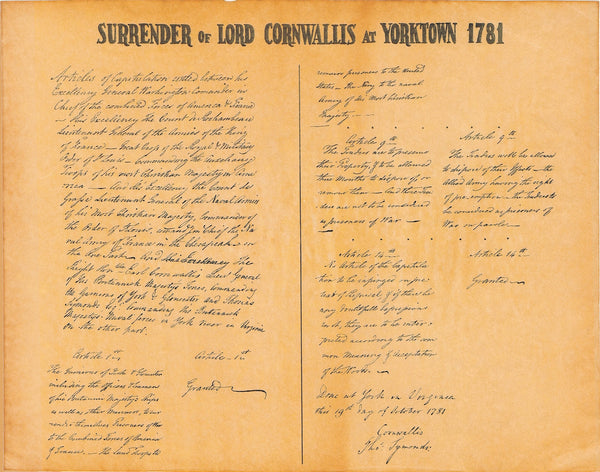 SURRENDER OF LORD CORNWALLIS AT YORKTOWN 1781
Articles of Capitulation settled between his
Excellency General Washington Commander in
Chief of the combined Forces of America & France
– His Excellency the Count de Rochambeau
Lieutenant General of the Armies of the King
of France – Great Cross of the Royal & Military
Order of St Louis – Commanding the auxiliary
Troops of his most Christian Majesty in Ame
rica – And His Excellency the Count de
Grasse Lieutenant General of the Naval Armies
of his Most Christian Majesty, Commander of
the Order of St Louis, commanding in Chief the Na
val Army of France in the Chesapeak – on
the One Part – And His Excellency The
Right Honble Earl Cornwallis Lieut General
of His Britannick Majesty's Forces, Commanding
the Garrisons of York & Gloucester and Thomas
Symonds Esqr commanding his Britannick
Majesty's Naval forces in York River in Virginia
on the other part.
Article 1st
The Garrisons of York & Gloucester
including the officers & Seamen
of his Britannic Majesty's Ships
as well as other Mariners, to sur
render themselves Prisoners of War
to the Combined Forces of America
& France. – the land Troops to
Article 1st
Granted
remain prisoners to the United
States – the Navy to the naval
Army of His Most Christian
Majesty –
Article 9th
The Traders are to preserve
their Property, & to be allowed
three Months to dispose of, or
remove them – And those Traders
are not to be considered
as prisoners of War –
Article 9th
The Traders will be allowed
to dispose of their Effects – the
Allied Army having the right
of pre-emption – the Traders to
be considered as prisoners of
War on parole.
Article 14th
No Article of the Capitula
tion to be infringed on pre
text of Reprisal, & if there be
any doubtfull Expressions
in it, they are to be inter
preted according to the com
mon Meaning & Acceptation
of the Words. –
Article 14th
Granted –
Done at York in Virginia
this 19th day of October 1781
Cornwallis
Thos. Symonds